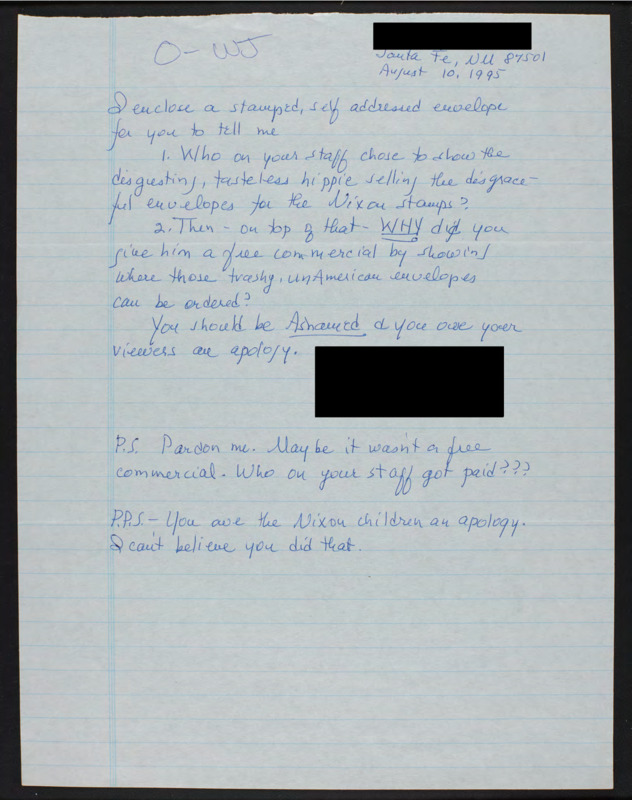 O-WJ
Santa Fe, NM 87501
August 10, 1995
I enclose a stamped, self addressed envelope
for you to tell me
1. Who on your staff chose to show the
disgusting, tasteless hippie selling the disgrace-
ful envelopes for the Nixon stamps?
2. Then - on top of that - WHY did you
give him a free commercial by showing
where those trashy, unAmerican envelopes
can be ordered?
You should be Ashamed & you owe your
viewers an apology.
P.S. Pardon me. Maybe it wasn't a free
commercial. Who on your staff got paid???
P.P.S. - You owe the Nixon children an apology.
I can't believe you did that.